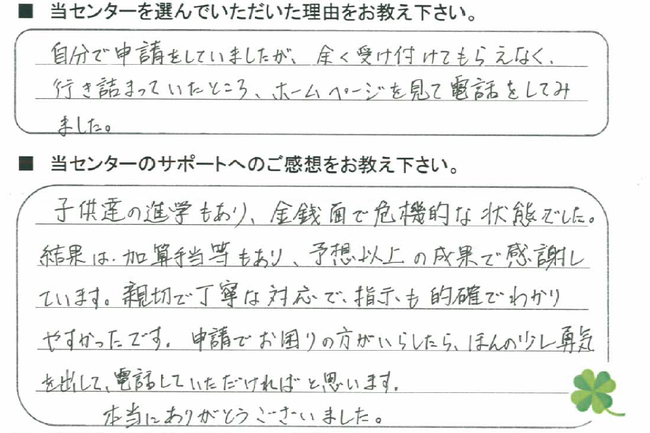 ■ 当センターを選んでいただいた理由をお教え下さい。
自分で申請をしていましたが、全く受け付けてもらえなく、
行き詰まっていたところ、ホームページを見て電話をしてみ
ました。
■ 当センターのサポートへのご感想をお教え下さい。
子供達の進学もあり、金銭面で危機的な状態でした。
結果は、加算手当等もあり、予想以上の成果で感謝し
ています。親切で丁寧な対応で、指示も的確でわかり
やすかったです。申請でお困りの方がいらしたら、ほんの少し勇気
を出して、電話していただければと思います。
本当にありがとうございました。